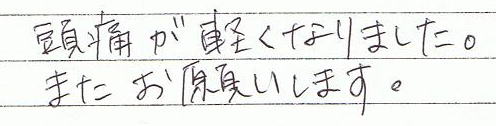 頭痛が軽くなりました。
またお願いします。